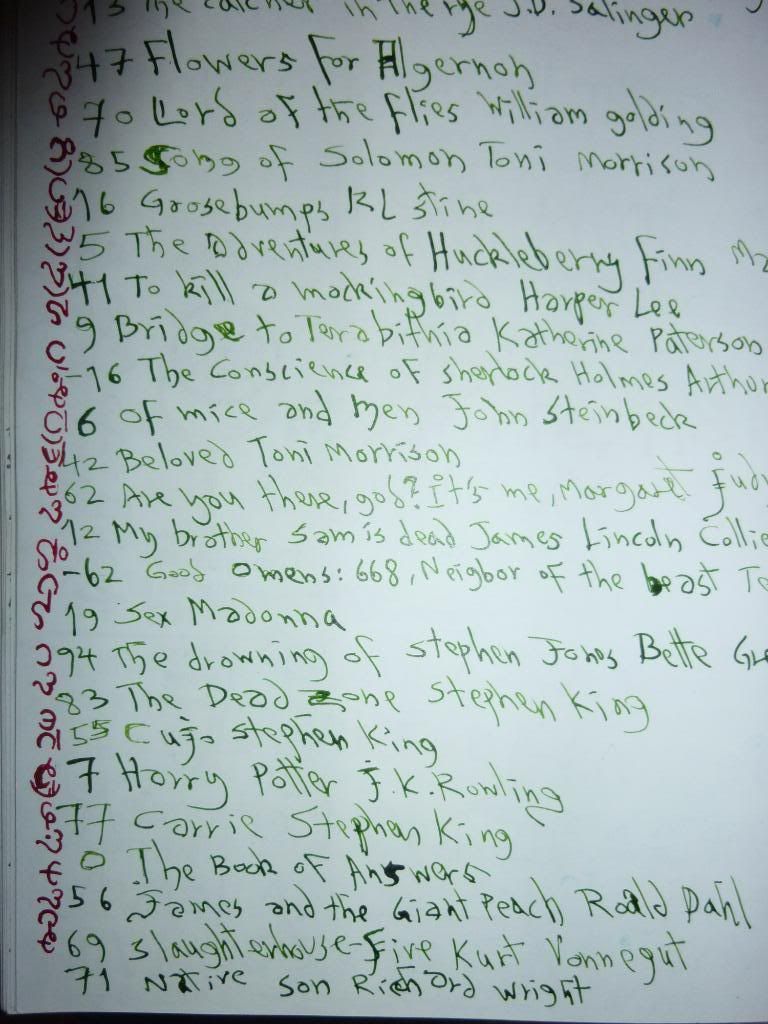 13 The catcher in the rye J.D. Salinger
47 Flowers for Algernon
70 Lord of the flies William golding
85 Song of Solomon Toni Morrison
16 Goosebumps RL Stine
5 The adventures of Huckleberry Finn Ma
41 To kill a mockingbird Harper Lee
9 Bridge to Terabithia Katherine Paterson
-16 The Conscience of sherlock Holmes Arthur
6 of mice and men John Steinbeck
42 Beloved Toni Morrison
62 Are you there, god? it's me, Margaret Judy
12 My brother Sam is dead James Lincoln Collie
-62 Good omens: 668, Neigbor of the beast Te
19 Sex Madonna
94 The drowning of stephen Jones Bette Gre
83 The Dead zone Stephen King
55 Cujo stephen King
7 Harry Potter J.K.Rowling
77 Carrie Stephen King
0 The Book of Answers
56 James and the Giant Peach Roald Dahl
69 Slaughterhouse-Five Kurt Vonnegut
71 Native son Richard wright